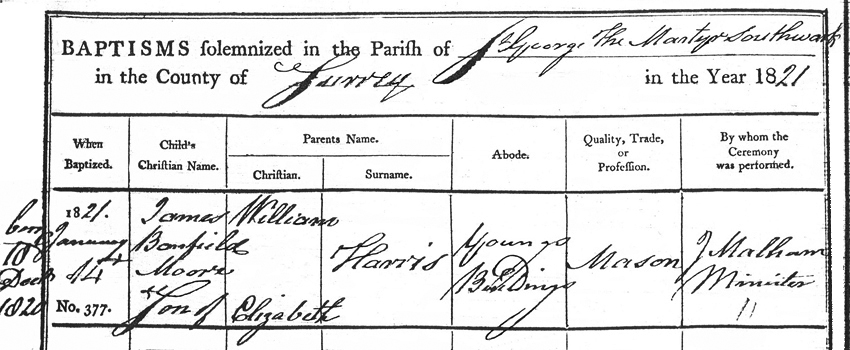 BAPTISMS solemnized in the Parish of St George The Martyr Southwark
in the County of Surrey in the Year 1821
When Baptized.
Child's Christian Name.
Parents Name.
Christian.
Surname.
Abode.
Quality, Trade, or Profession.
By whom the Ceremony was performed.
born
18
Decr
1820
1821.
January
14
No. 377.
James
Bonfield
Moore
Son of
William
Elizabeth
Harris
Youngs
Buildings
Mason
J Malham
Minister
"